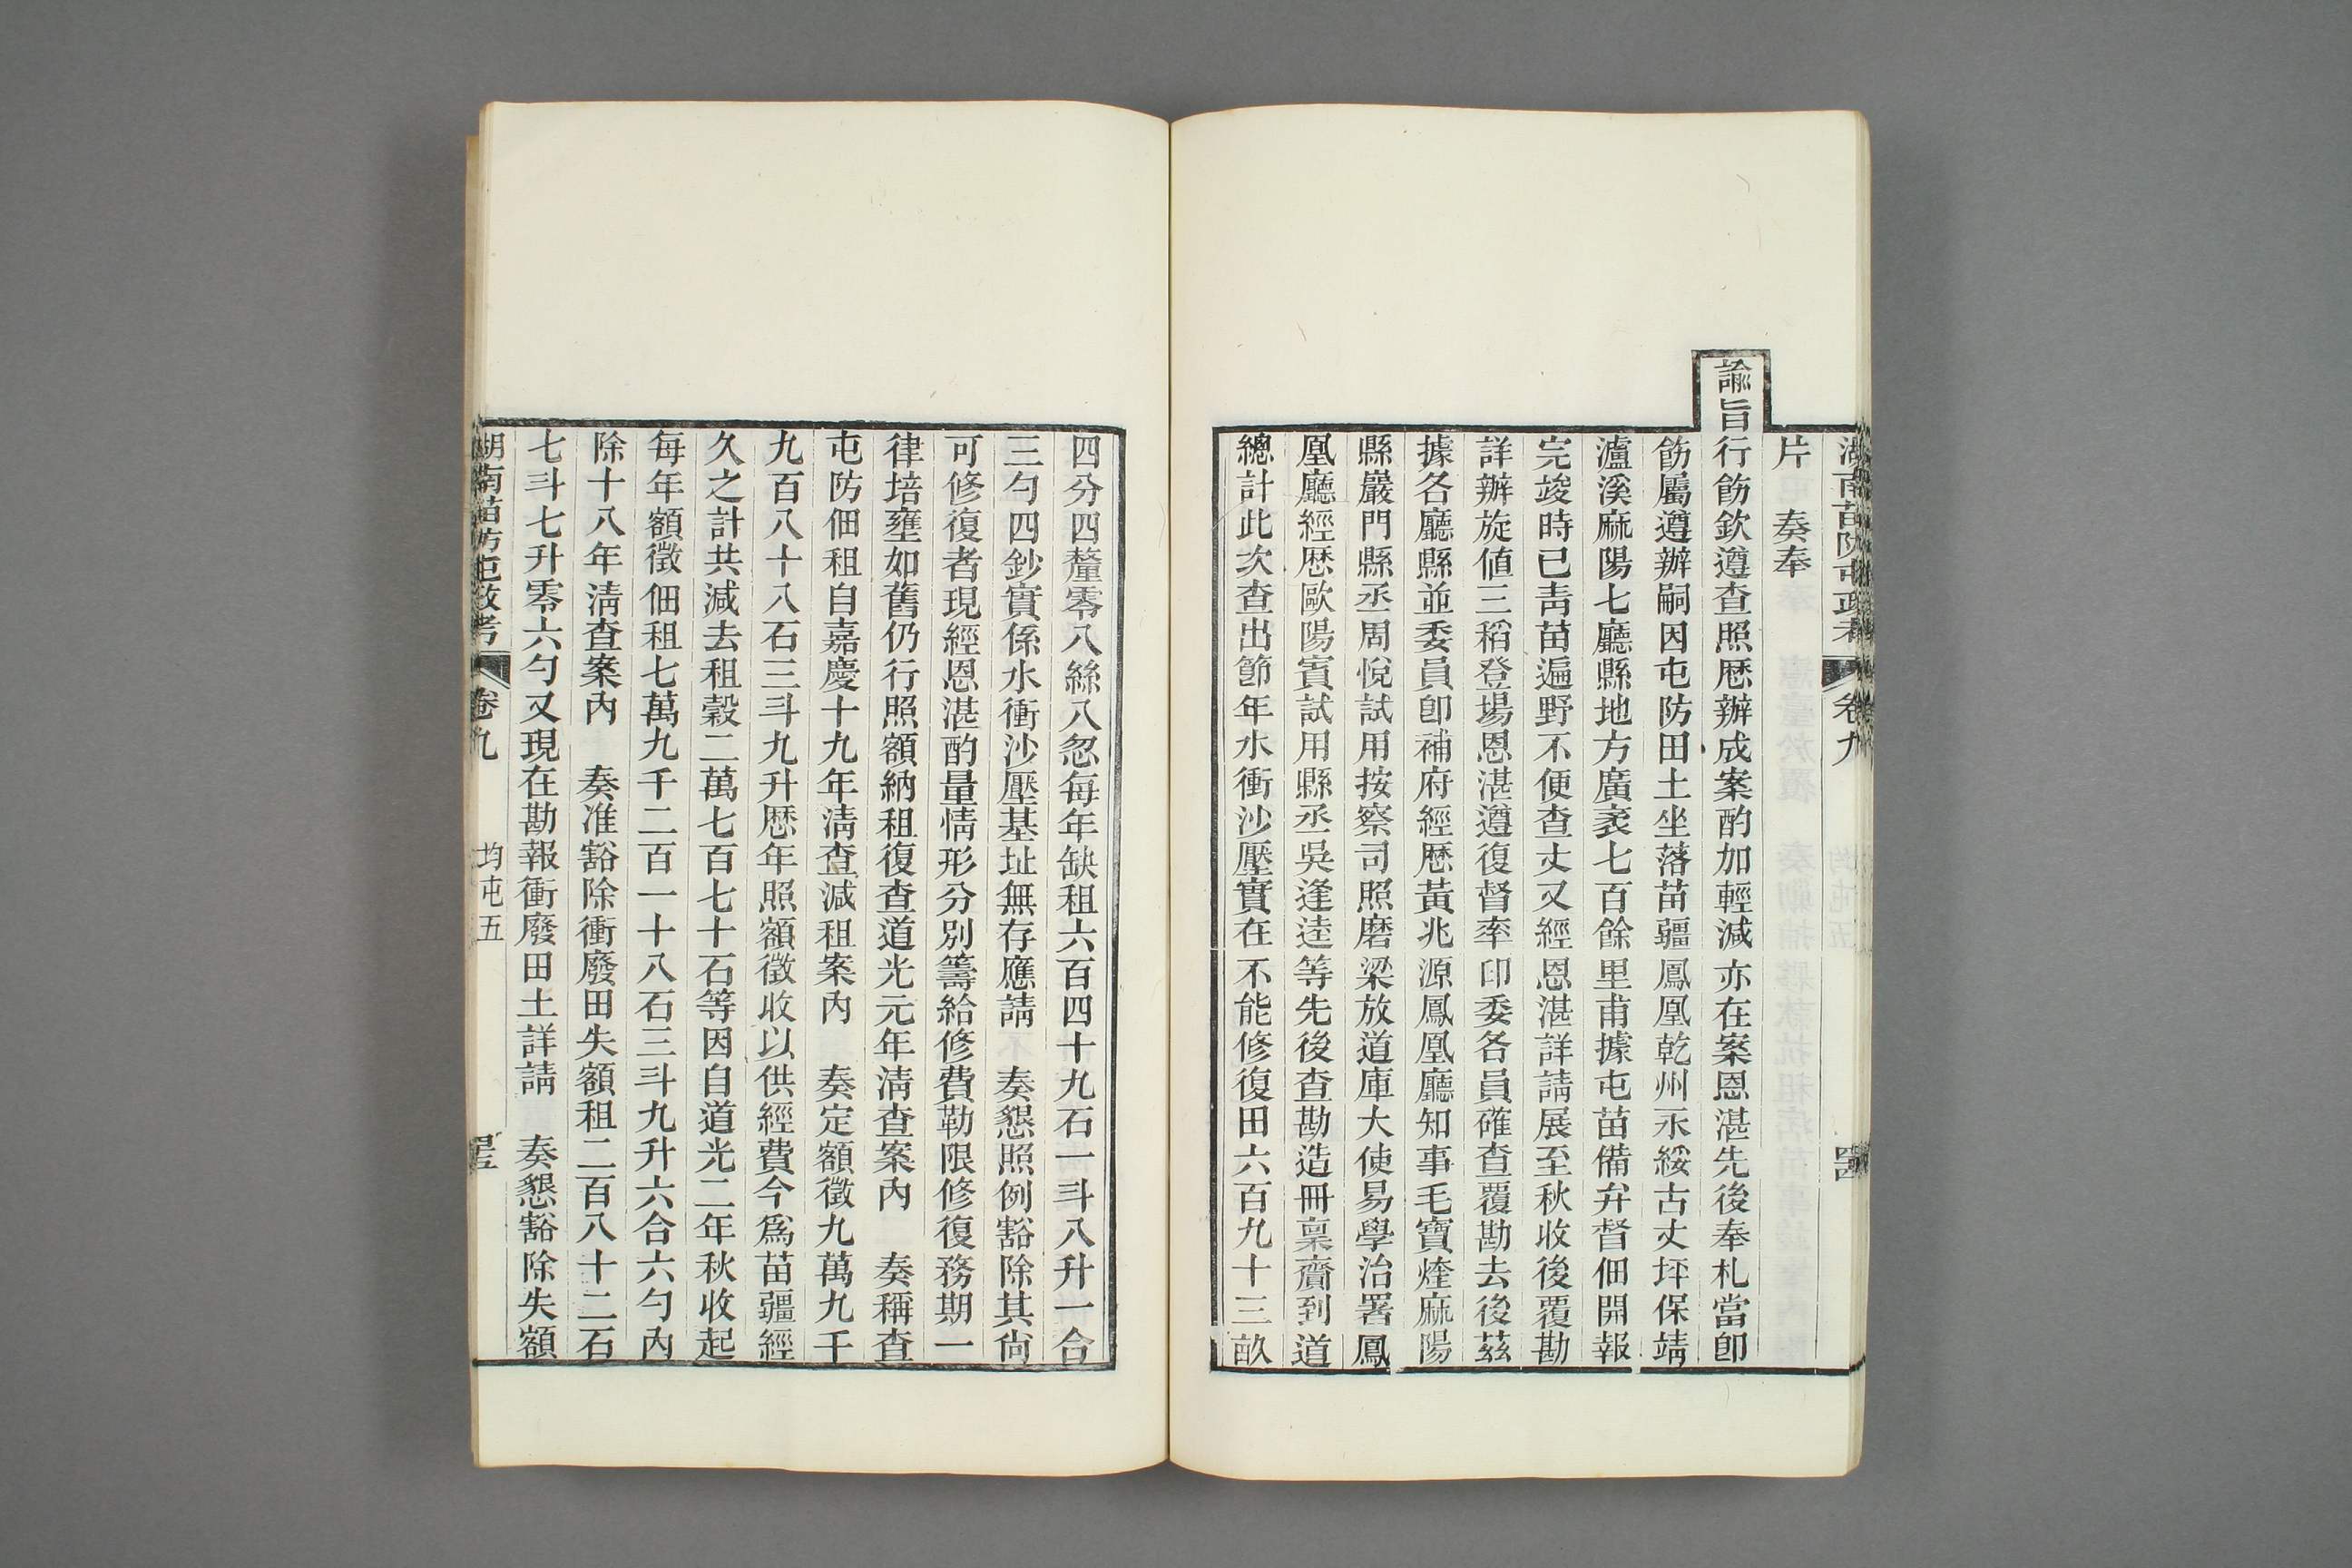 湖南苗防屯政考 卷九
片 奏奉
諭旨行飭欽遵查照歷辦成案酌加輕減亦在案恩湛先後奉札當卽
飭屬遵辦嗣因屯防田土坐落苗疆鳳凰乾州永綏古丈坪保靖
瀘溪麻陽七廳縣地方廣袤七百餘里甫據屯苗備弁督佃開報
完竣時已靑苗遍野不便查丈又經恩湛詳請展至秋收後覆勘
詳辦旋値三稻登場恩湛遵復督率印委各員確查覆勘去後茲
據各廳縣並委員卽補府經歷黃兆源鳳凰廳知事毛寶煃麻陽
縣巖門縣丞周悅試用按察司照磨梁放道庫大使易學治署鳳
凰廳經歷歐陽賓試用縣丞吳逢逵等先後查勘造冊稟齎到道
總計此次查出節年水衝沙壓實在不能修復田六百九十三畝
四分四釐零八絲八忽每年缺租六百四十九石一斗八升一合
三勺四鈔實係水衝沙壓基址無存應請 奏懇照例豁除其尙
可修復者現經恩湛酌量情形分別籌給修費勒限修復務期一
律培壅如舊仍行照額納租復查道光元年淸查案內 奏稱查
屯防佃租自嘉慶十九年淸查減租案內 奏定額徵九萬九千
九百八十八石三斗九升歷年照額徵收以供經費今爲苗疆經
久之計共減去租穀二萬七百七十石等因自道光二年秋收起
每年額徵佃租七萬九千二百一十八石三斗九升六合六勺內
除十八年淸查案內 奏准豁除衝廢田失額租二百八十二石
七斗七升零六勺又現在勘報衝廢田土詳請 奏懇豁除失額
湖南苗防屯政考 卷九 均屯五